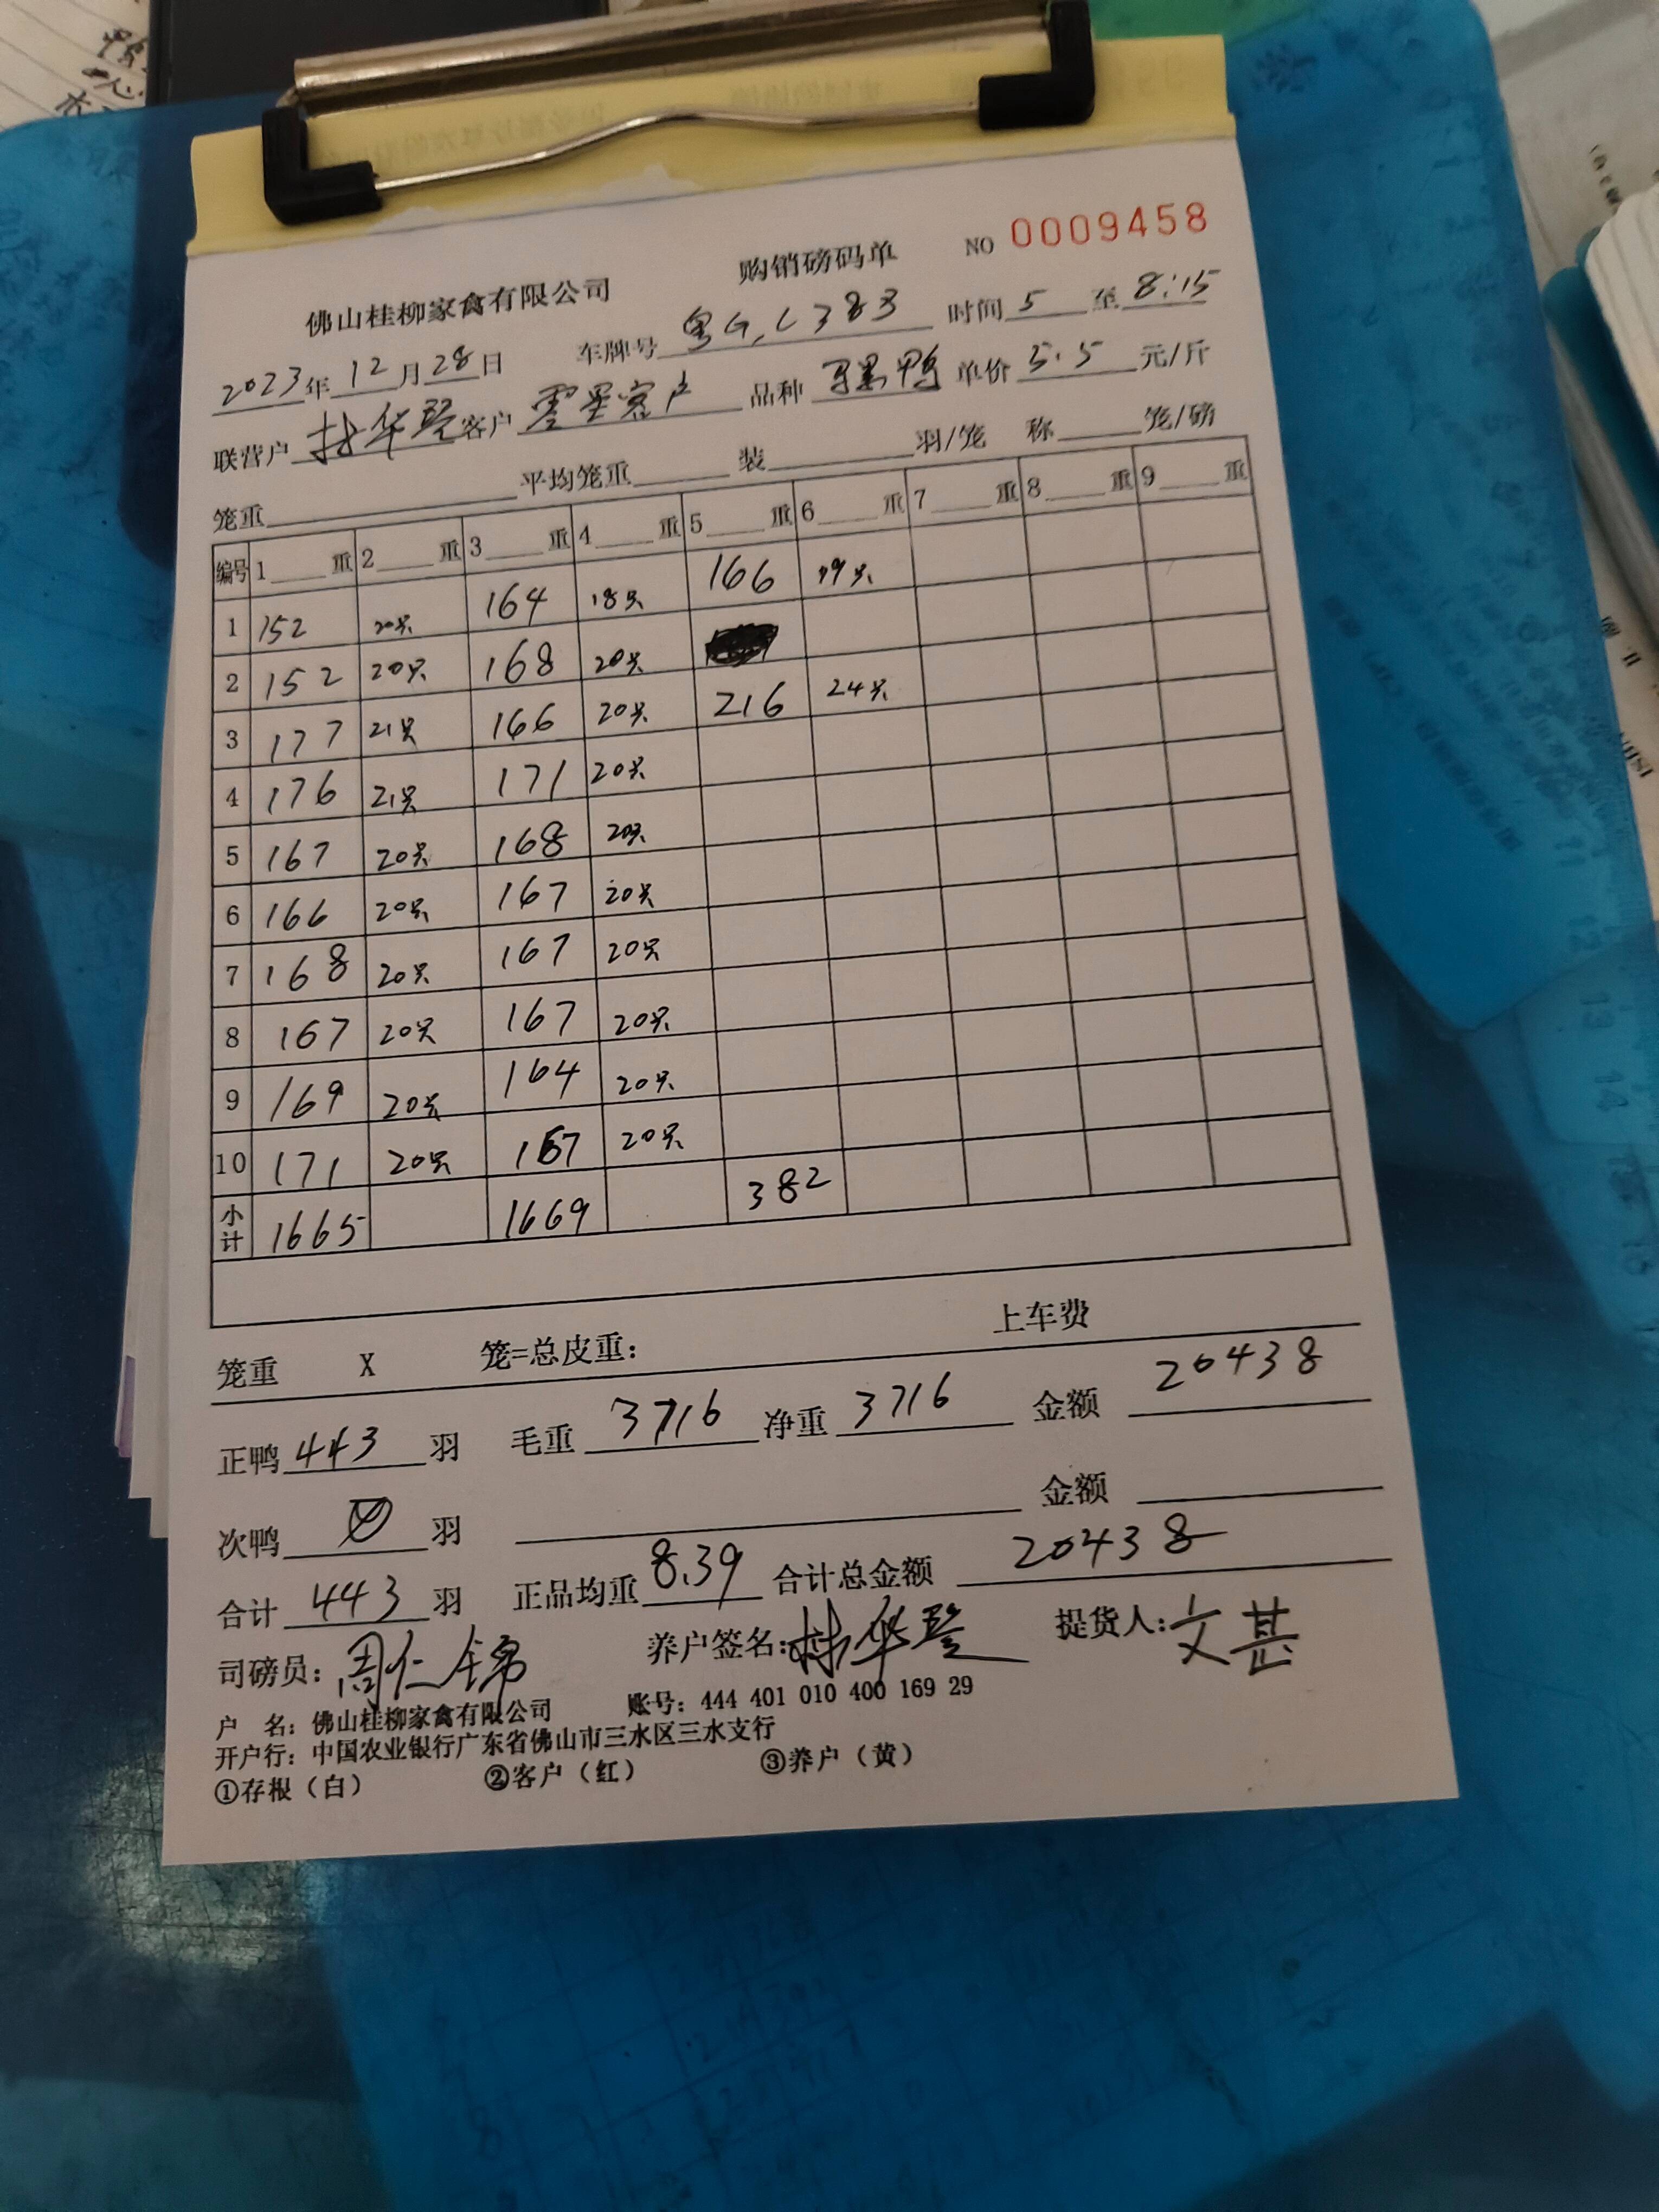 佛山桂柳家禽有限公司 购销磅码单 NO 0009458
2023年12月28日 车牌号粤G,L383 时间5至8:15
联营户林华登客户零星客户 品种 鸭 单价5.5元/斤
笼重 平均笼重 装 羽/笼 称 笼/磅
编号 1 重 2 重 3 重 4 重 5 重 6 重 7 重 8 重 9 重
1 152 20只 164 18只 166 19只
2 152 20只 168 20只
3 177 21只 166 20只 216 24只
4 176 21只 171 20只
5 167 20只 168 20只
6 166 20只 167 20只
7 168 20只 167 20只
8 167 20只 167 20只
9 169 20只 164 20只
10 171 20只 167 20只
小计 1665 1669 382
笼重 X 笼=总皮重: 上车费
正鸭443羽 毛重3716净重3716 金额20438
次鸭 羽 金额
合计443羽 正品均重8.39 合计总金额20438
司磅员:周仁锦 养户签名:林华登 提货人:文甚
户 名:佛山桂柳家禽有限公司 账号:444 401 010 400 169 29
开户行:中国农业银行广东省佛山市三水区三水支行
①存根（白） ②客户（红） ③养户（黄）